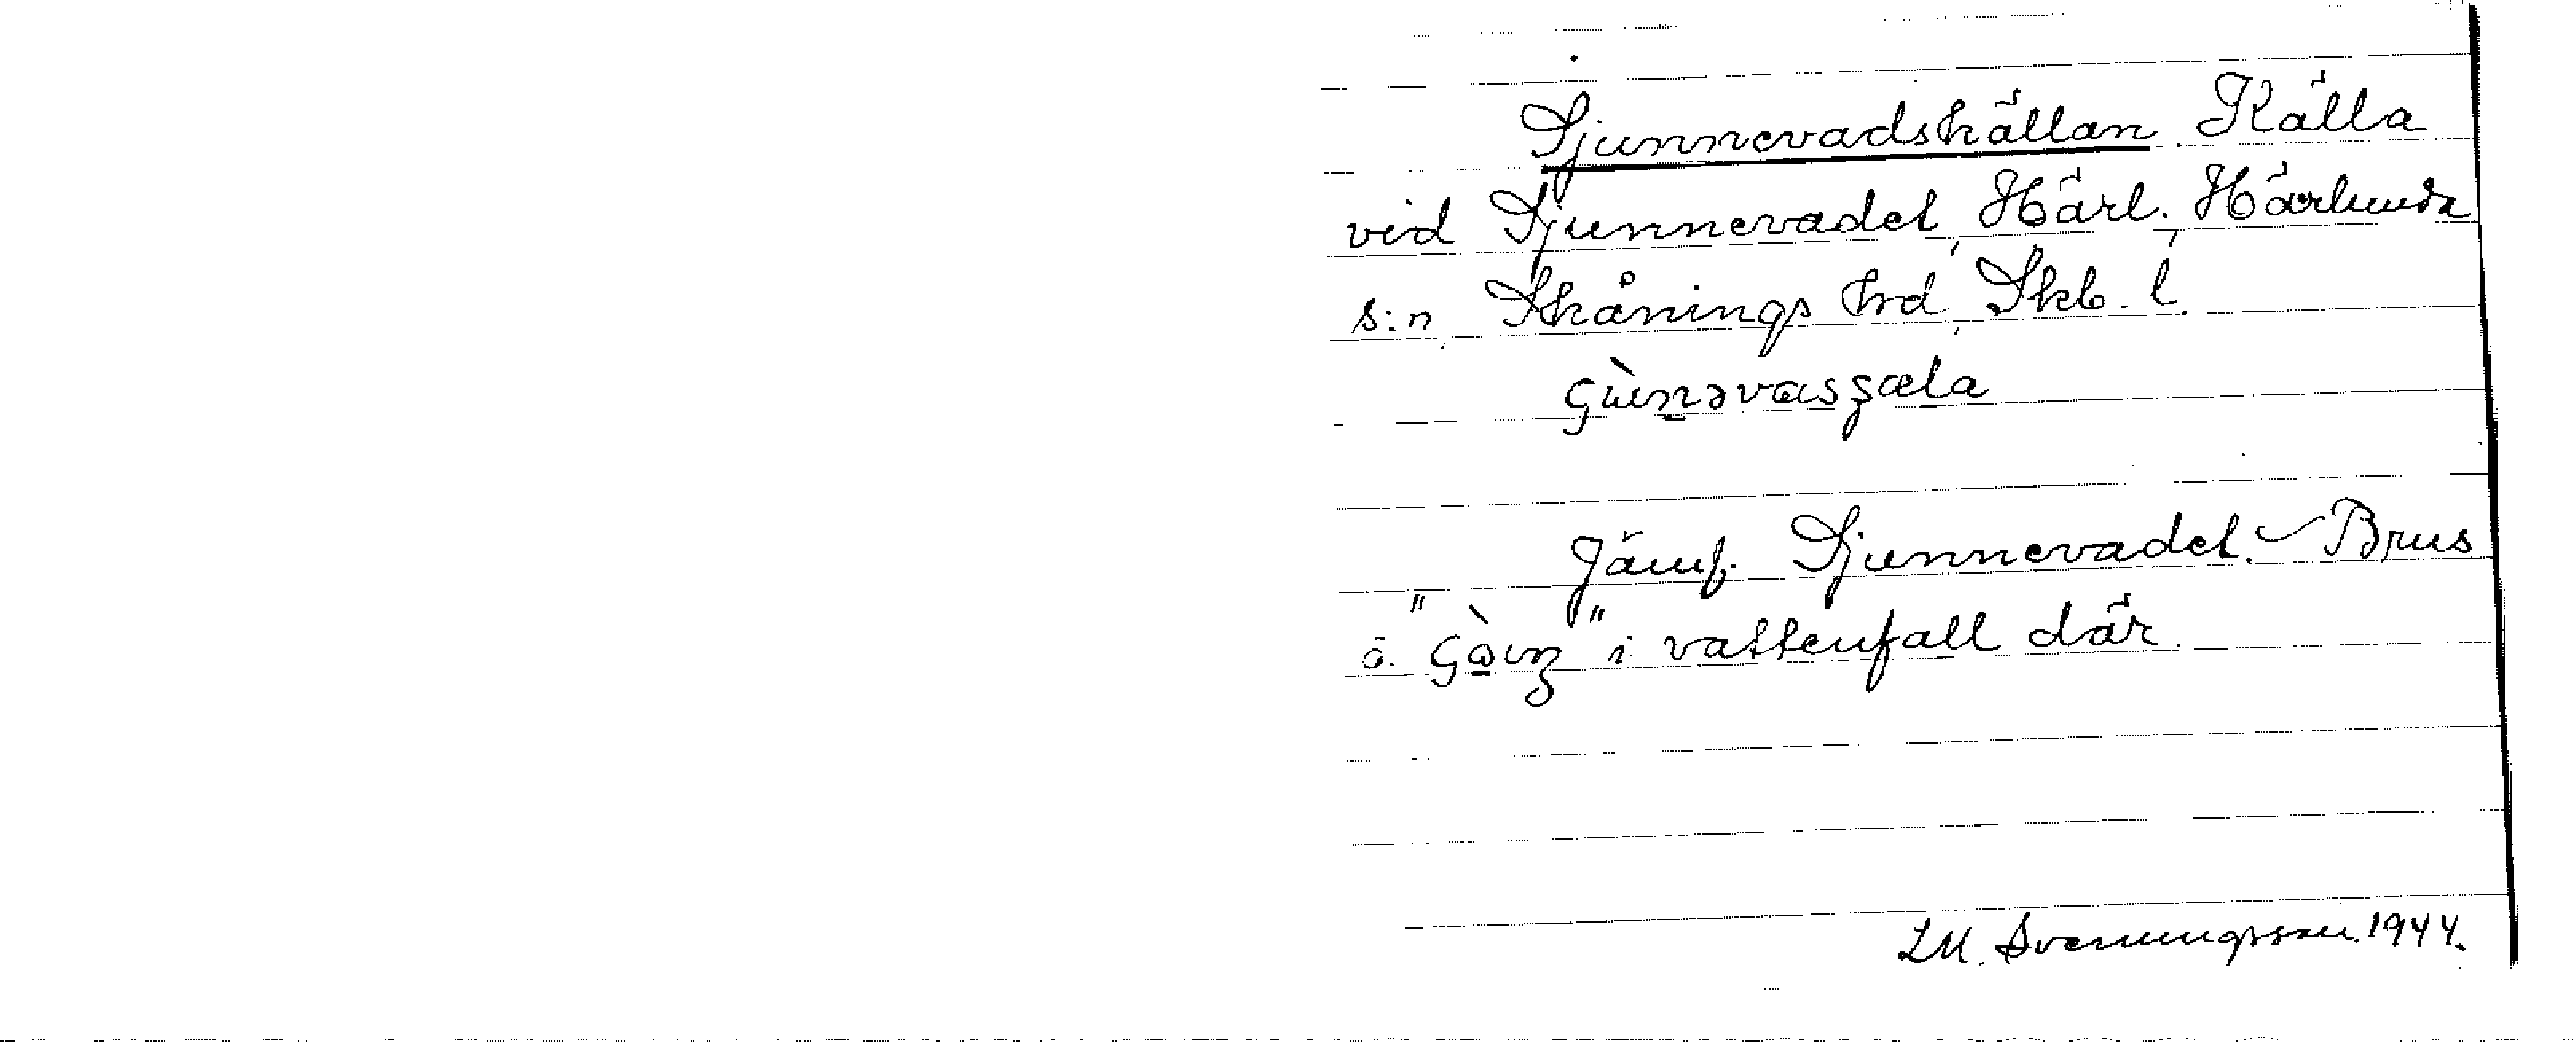 Sjunnevadskällan. Källa
vid Sjunnevadet, Härl., Härlunda
s:n, Skånings hrd, Skb. l.
Jämf. Sjunnevadet. – Brus
i vattenfall där.
LM. Svenungsson. 1944.